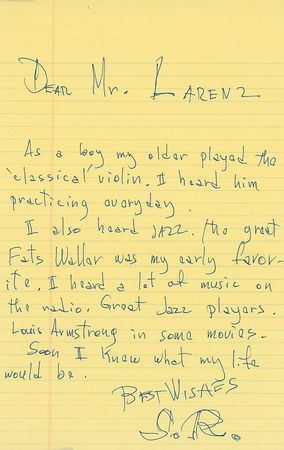 Dear Mr. Larenz
As a boy my older played the
'classical' violin. I heard him
practicing everyday.
I also heard JAZZ. The great
Fats Waller was my early favor-
ite. I heard a lot of music on
the radio. Great Jazz players.
Louis Armstrong in some movies.
Soon I knew what my life
would be.
Best Wishes
S. R.